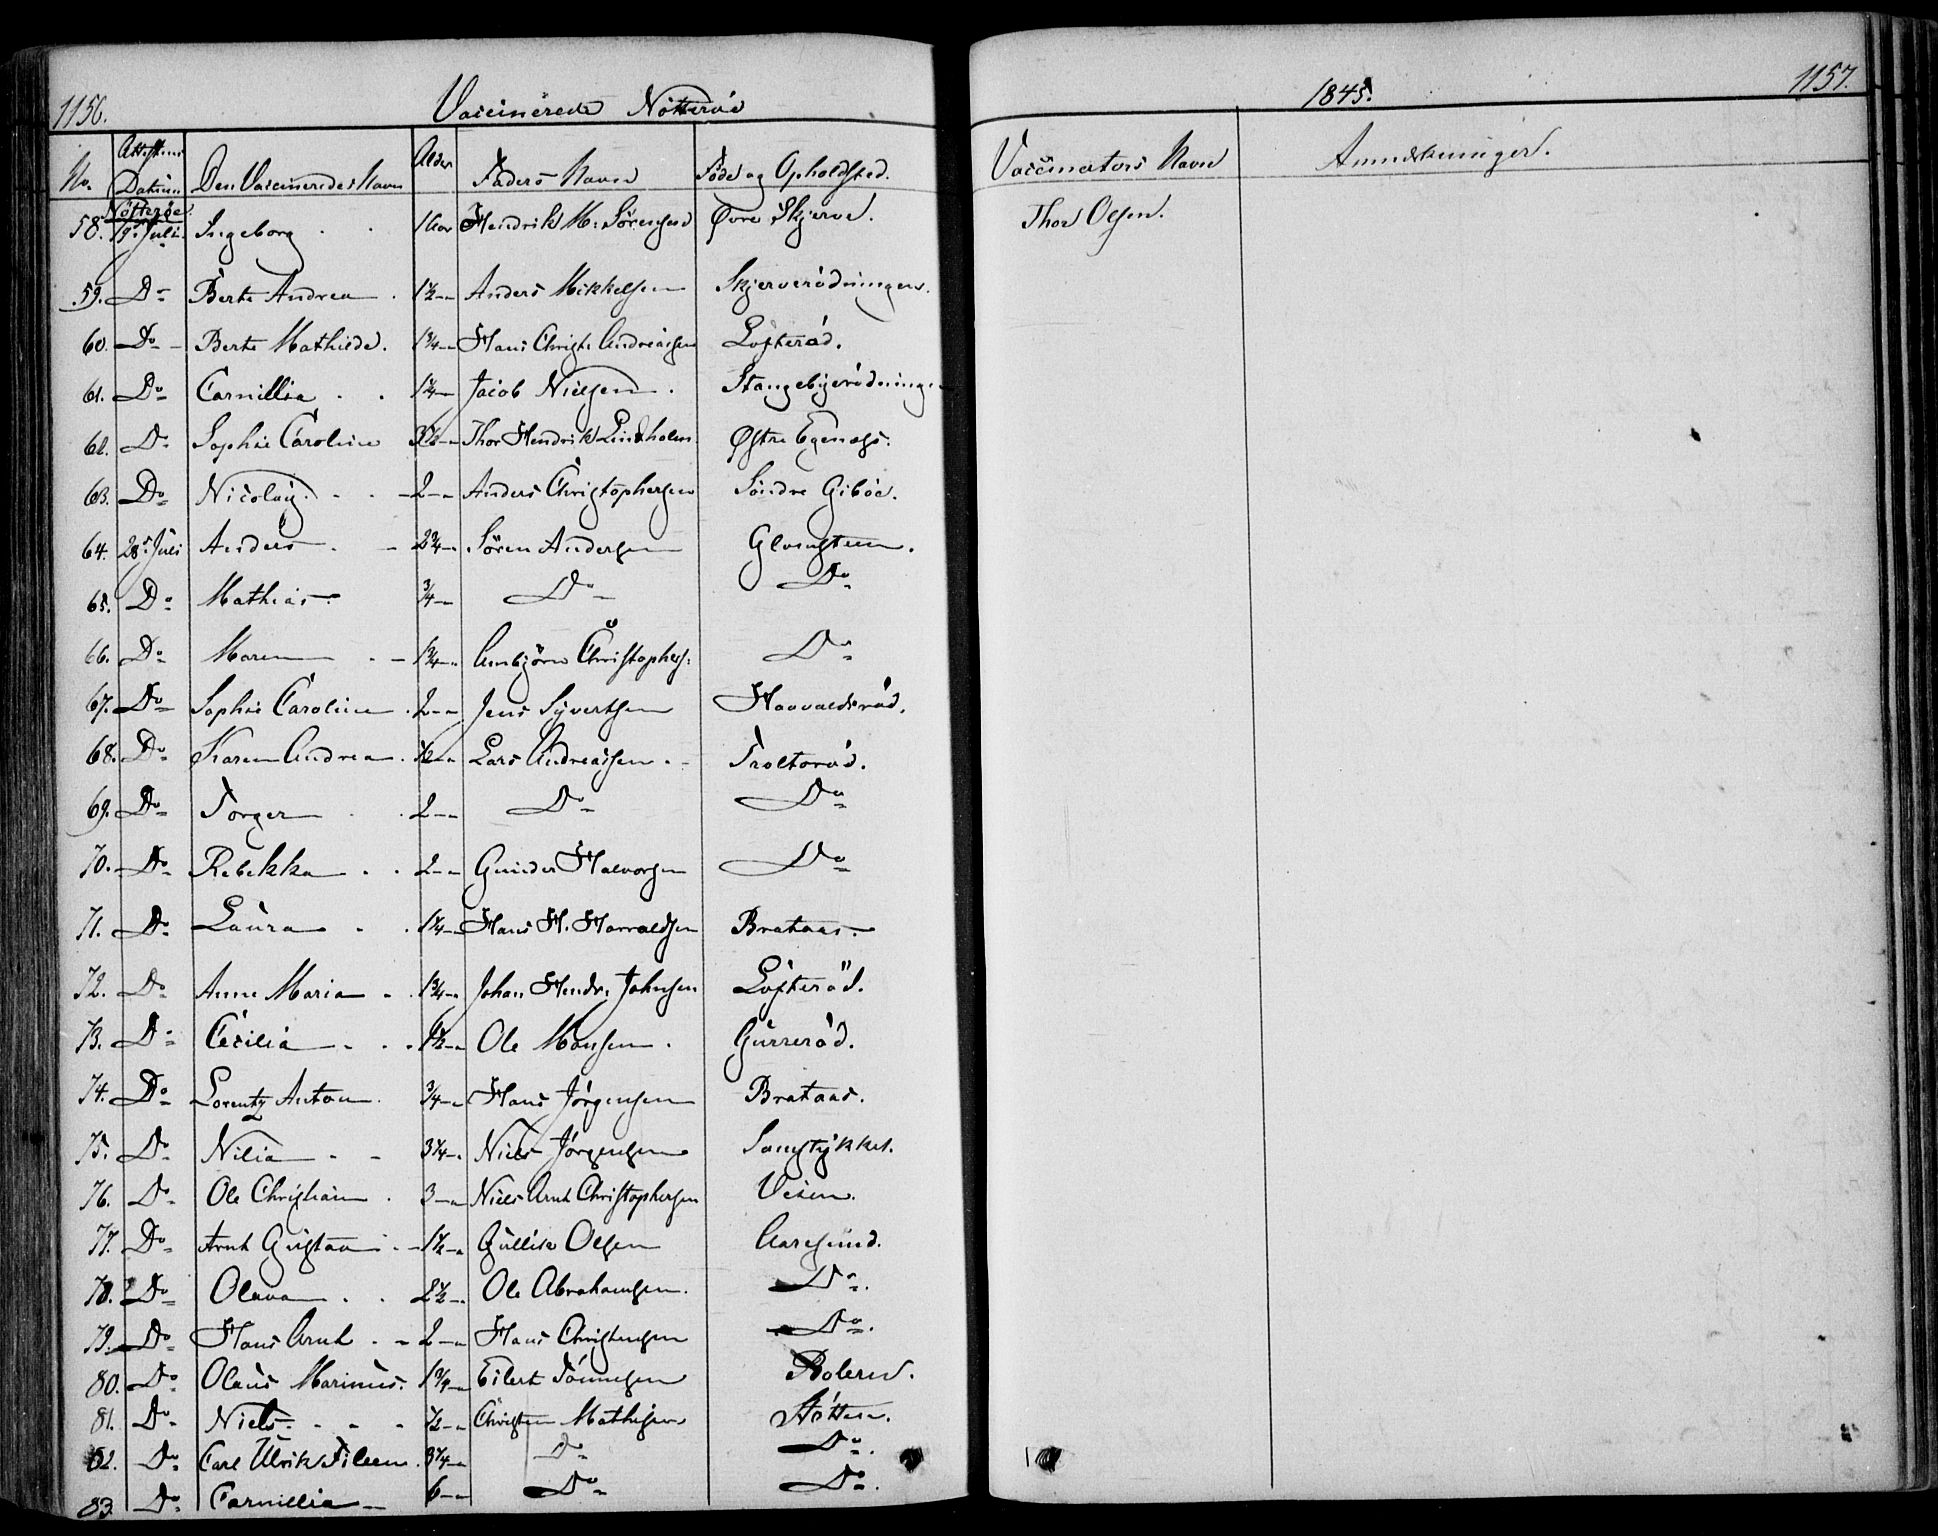 1156. Vaccinerede Nötteröe
No. Attestens Datum Den Vaccineredes Navn Alder Faders Navn Föde og Opholdsted.
Nötteröe
58. 19. Juli Ingeborg 1 Aar Hendrik M. Sörensen Øvre Skjerve.
59. Do Berte Andrea 1½ Anders Mikkelsen Skjerverödningen.
60. Do Berte Mathilde. 1¾ Hans Christ. Andreassen Lofteröd.
61. Do Carnillia 1¼ Jacob Nielsen. Stangebyerödninge
62. Do Sophie Caroline Thor Hendrik Lindholm Østre Egenæs.
63. Do Nicolay 2 Anders Christophersen Söndre Giböe.
64. 28. Juli Anders 2¾ Sören Andersen Glomsteen.
65. Do Mathias ¾ Do Do
66. Do Maren 1¾ Anbjörn Christophers: Do
67. Do Sophie Caroline 2 Jens Syvertsen Haavaldsröd.
68. Do Karen Andrea ½ Lars Andreassen Troltoröd.
69. Do Torger 2 Do Do
70. Do Rebekka 2 Gunder Halvorsen Do
71. Do Laura 1¼ Hans H. Harraldsen Brataas.
72. Do Anne Maria 1¾ Johan Hendr. Johnsen Lofteröd.
73. Do Cecilia 1½ Ole Monsen. Gurreröd.
74. Do Lorentz Anton ¾ Hans Jörgensen Brataas.
75. Do Nilia 3¼ Niels Jörgensen Sagstykket.
76. Do Ole Christian 3 Niels Arnt Christophersen Veien.
77. Do Arnt Gustav 1½ Gullik Olsen Aaresund.
78. Do Olava 2½ Ole Abrahamsen. Do
79. Do Hans Arnt 2 Hans Christensen Do
80. Do Olaus Marinus. 1¾ Eilert Tönnesen Boleren.
81. Do Niels ½ Christen Mathisen
82. Do Carl Ulrik Fileen 3¼ Do Do
83. Do Carnillia 6 Do Do
1845. 1157.
Vaccinators Navn Anmerkninger.
Thor Olsen.